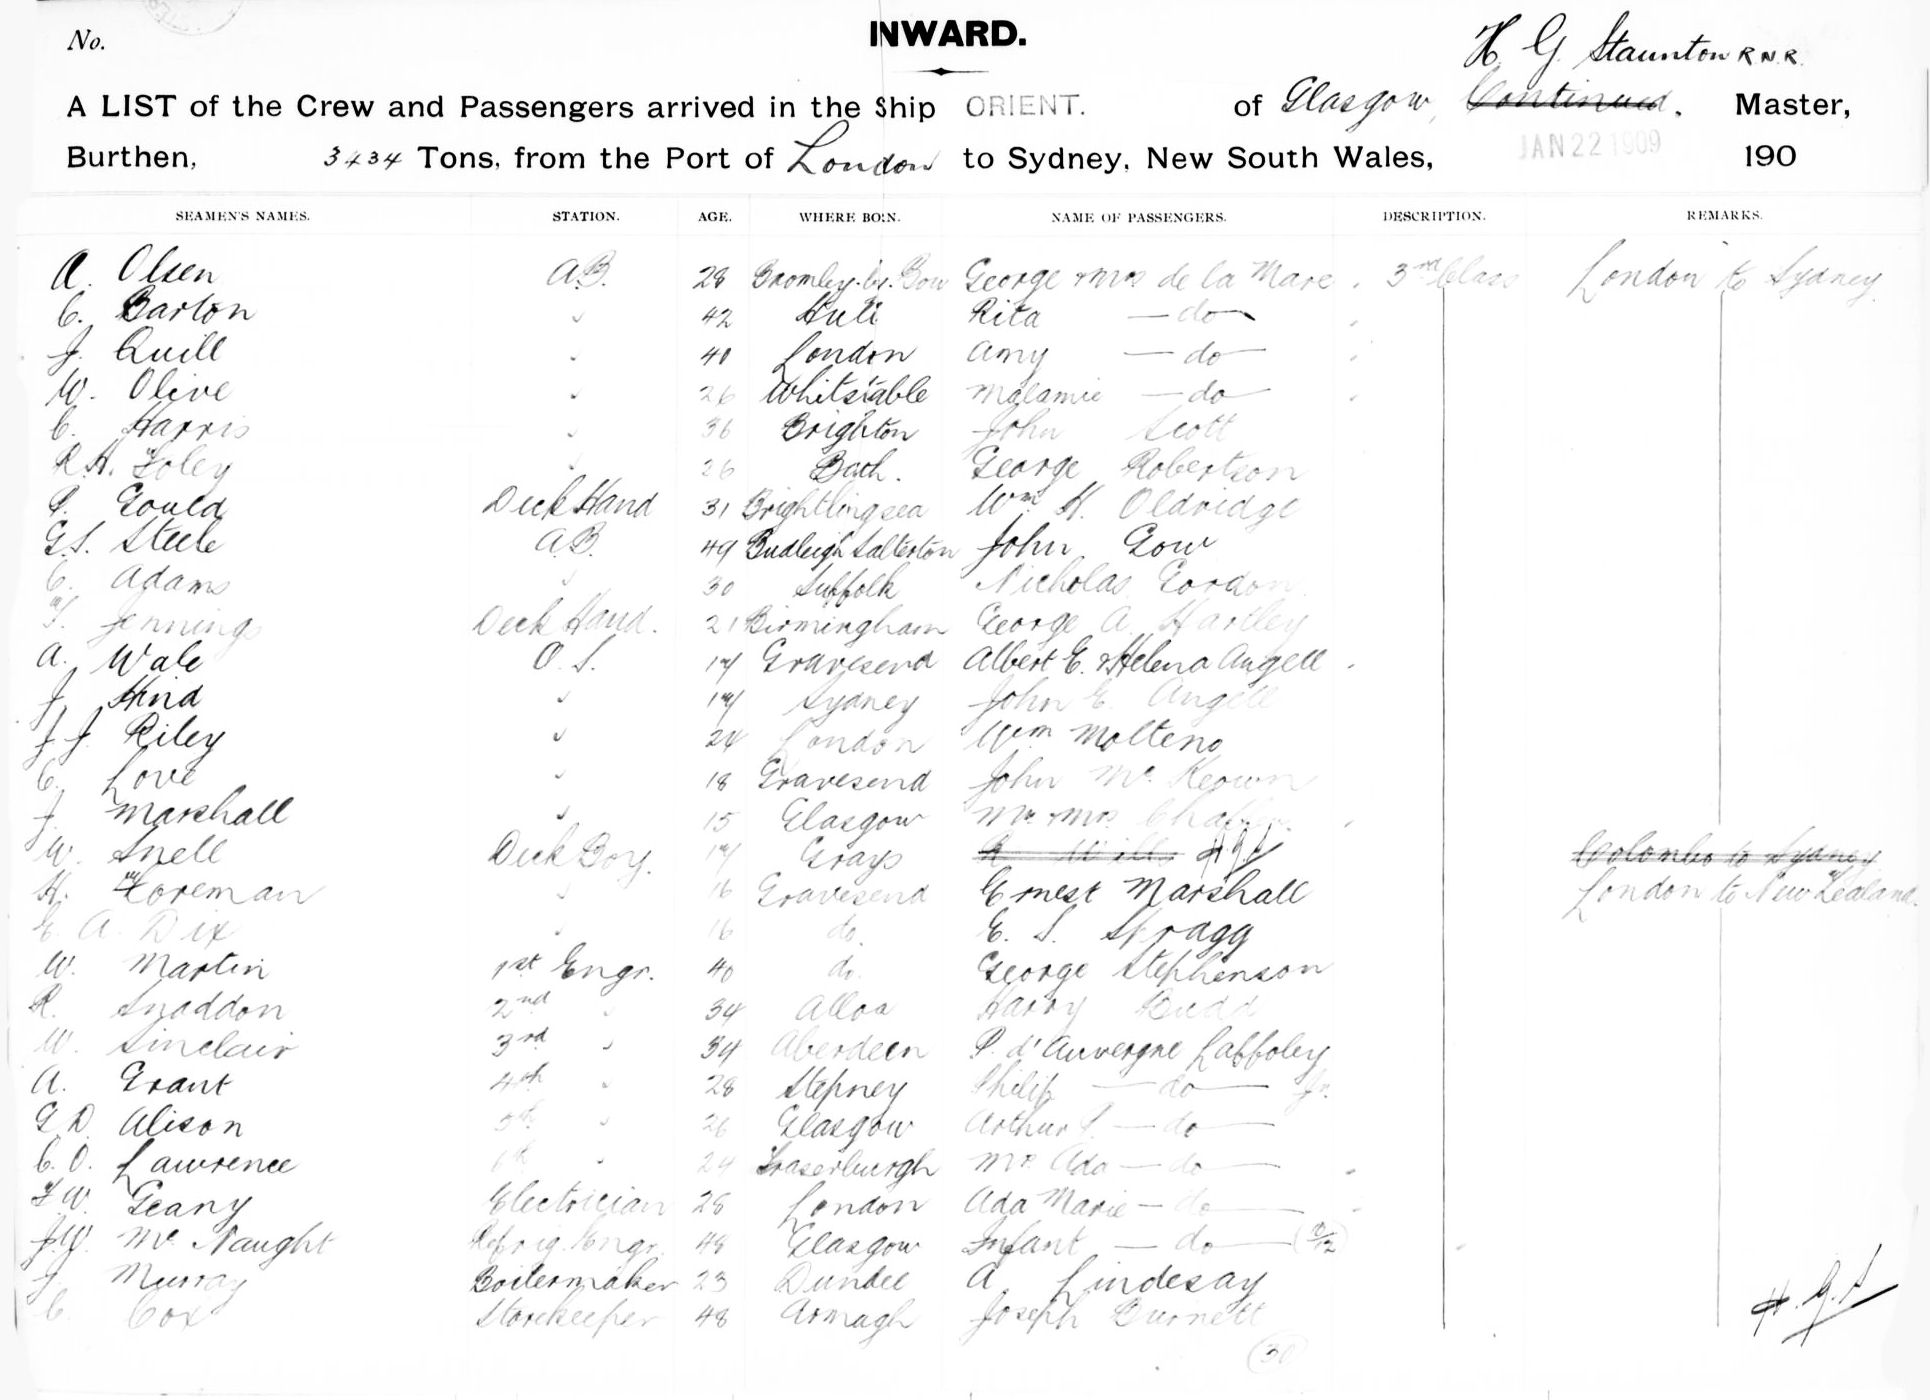 No.
INWARD.
H. G. Staunton R.N.R.
A LIST of the Crew and Passengers arrived in the Ship ORIENT. of Glasgow, Continued. Master,
Burthen, 3434 Tons, from the Port of London to Sydney, New South Wales, JAN 22 1909 190
SEAMEN'S NAMES. STATION. AGE. WHERE BORN. NAME OF PASSENGERS. DESCRIPTION. REMARKS.
A. Olsen A.B. 28 Bromley-by-Bow George & Mrs de la Mare 3rd Class London to Sydney
C. Barton " 42 Hull Rita — do —
J. Quill " 40 London Amy — do —
W. Olive " 26 Whitstable — do —
C. Harris " 36 Brighton John Scott
R.H. Foley " 26 Bath. George Robertson
P. Gould Deck Hand 31 Brightlingsea Wm H. Oldridge
G.S. Steele A.B. 49 Budleigh Salterton John Gow
C. Adams " 30 Suffolk Nicholas Gordon
F. Jennings Deck Hand. 21 Birmingham George A. Hartley
A. Wale O.S. 17 Gravesend Albert E. & Helena Angell
J. Hind " 17 Sydney John E. Angell
J. J. Riley " 24 London Wm Molteno
C. Love " 18 Gravesend John McKeown
J. Marshall " 15 Glasgow Mr & Mrs
W. Snell Deck Boy. 17 Grays R Wills H.G.S Colombo to Sydney
H. Foreman " 16 Gravesend Ernest Marshall London to New Zealand.
E. A. Dix " 16 do. E. S. Spragg
W. Martin 1st Engr. 40 do. George Stephenson
R. Snaddon 2nd " 34 Alloa Harry Budd
W. Sinclair 3rd " 34 Aberdeen P. d'Auvergne Laffoley
A. Grant 4th " 28 Stepney Philip — do — Jr.
G D. Alison 5th " 26 Glasgow Arthur S. — do —
C. O. Lawrence 6th " 24 Fraserburgh Mrs Ada — do —
F. W. Geany Electrician 28 London Ada Marie — do —
J.W. McNaught Refrig. Engr. 48 Glasgow Infant — do —
J. Murray Boilermaker 23 Dundee A Lindesay
C. Cox Storekeeper 48 Armagh Joseph Burnett
H.G.S
30